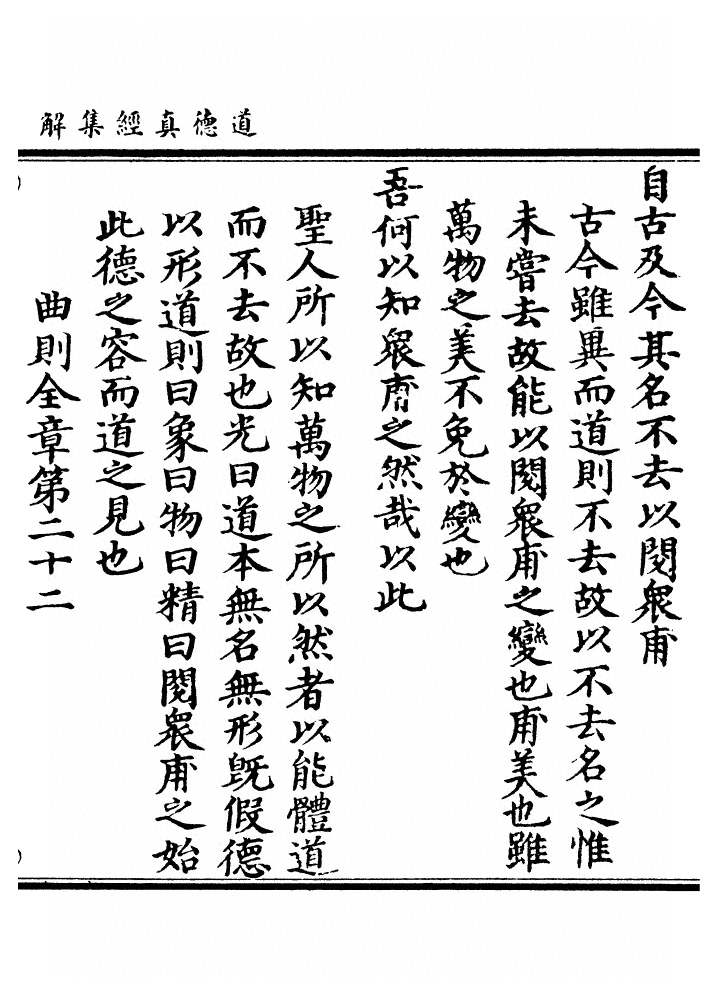 道德真經集解
自古及今其名不去以閱衆甫
古今雖異而道則不去故以不去名之惟
未嘗去故能以閱衆甫之變也甫美也雖
萬物之美不免於變也
吾何以知衆甫之然哉以此
聖人所以知萬物之所以然者以能體道
而不去故也光曰道本無名無形旣假德
以形道則曰象曰物曰精曰閱衆甫之始
此德之容而道之見也
曲則全章第二十二